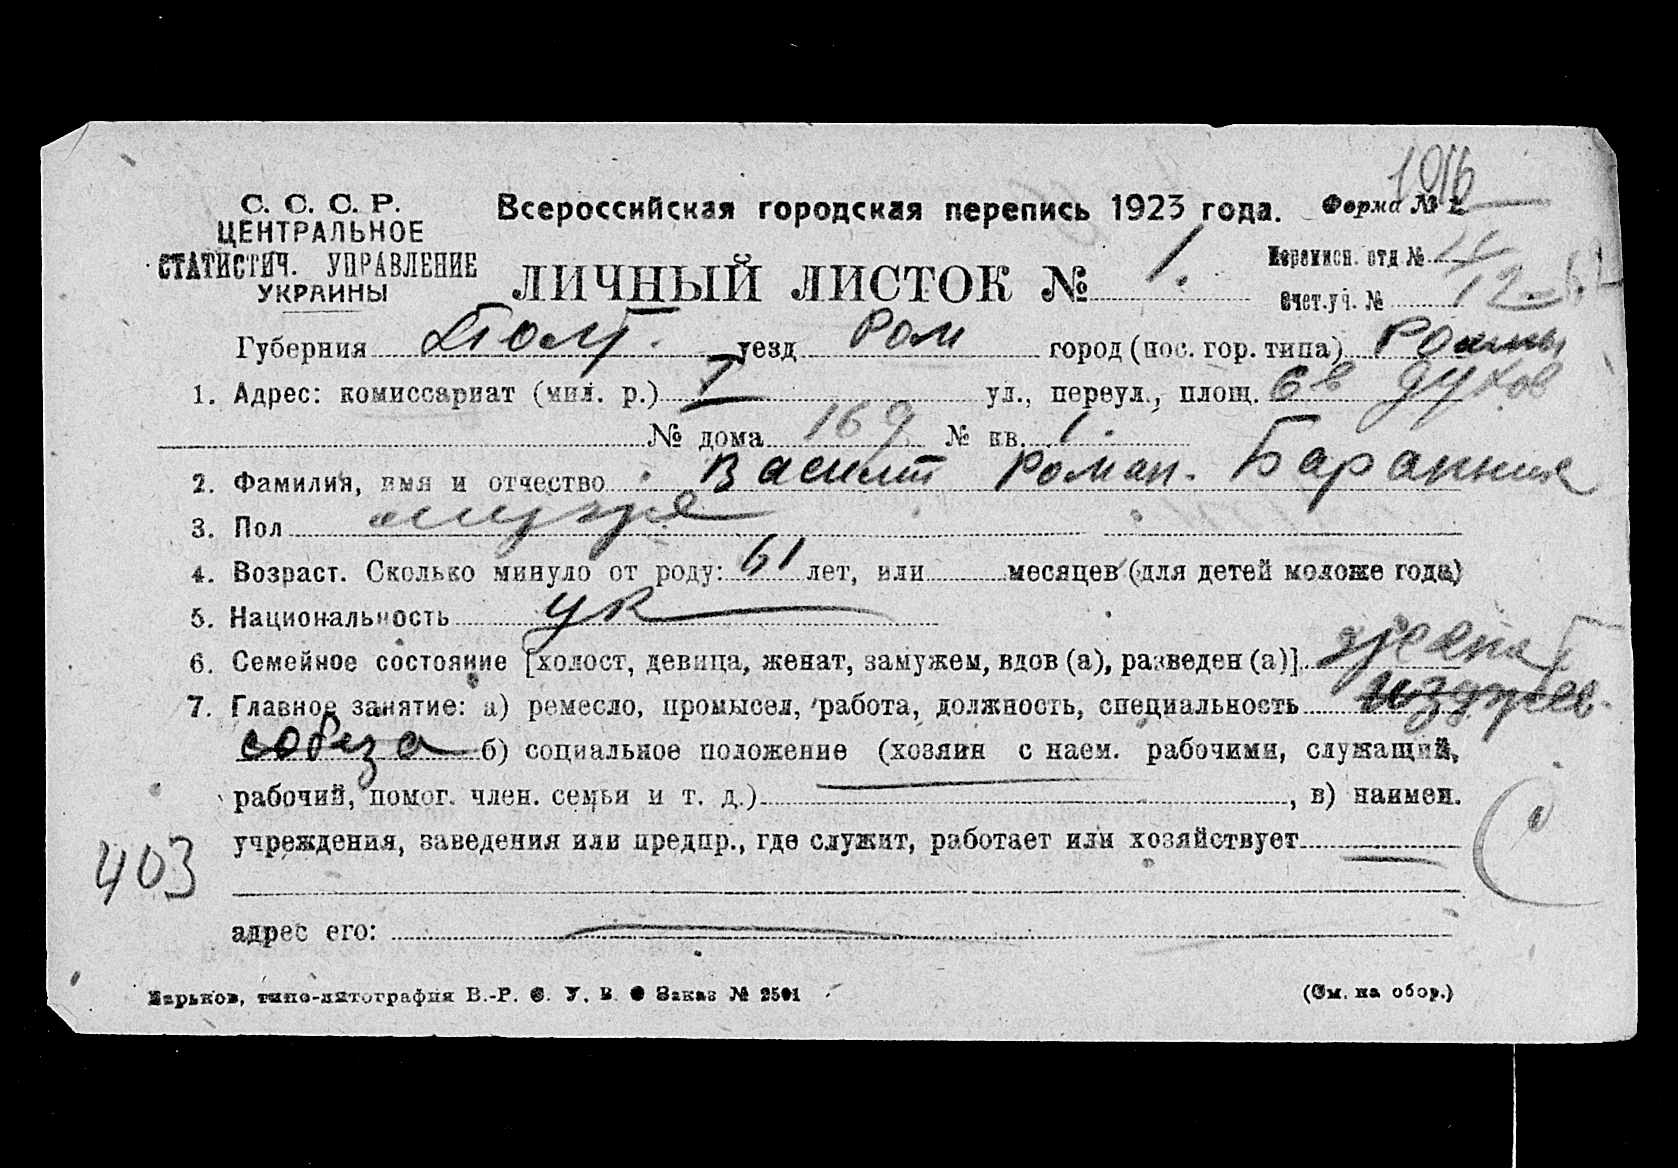 1016
С. С. С. Р.
ЦЕНТРАЛЬНОЕ
СТАТИСТИЧ. УПРАВЛЕНИЕ
УКРАИНЫ
Всероссийская городская перепись 1923 года. Форма № 2
ЛИЧНЫЙ ЛИСТОК № 1.
Переписн. отд №
Счет.уч. № 12
Губерния Полт. уезд Ром город (пос. гор. типа) Ромны
1. Адрес: комиссариат (мил. р.) I ул., переул., площ. Св Духов
№ дома 169 № кв. 1.
2. Фамилия, имя и отчество Василий Роман. Баранник
3. Пол мужск
4. Возраст. Сколько минуло от роду: 61 лет, или месяцев (для детей моложе года)
5. Национальность ук
6. Семейное состояние [холост, девица, женат, замужем, вдов (а), разведен (а)] женат
7. Главное занятие: а) ремесло, промысел, работа, должность, специальность иждив.
собеза б) социальное положение (хозяин с наем. рабочими, служащий,
рабочий, помог. член. семьи и т. д.) , в) наимен.
учреждения, заведения или предпр., где служит, работает или хозяйствует
403
адрес его:
Харьков, типо-литография В.-Р. С. У. В. Заказ № 2501 (См. на обор.)